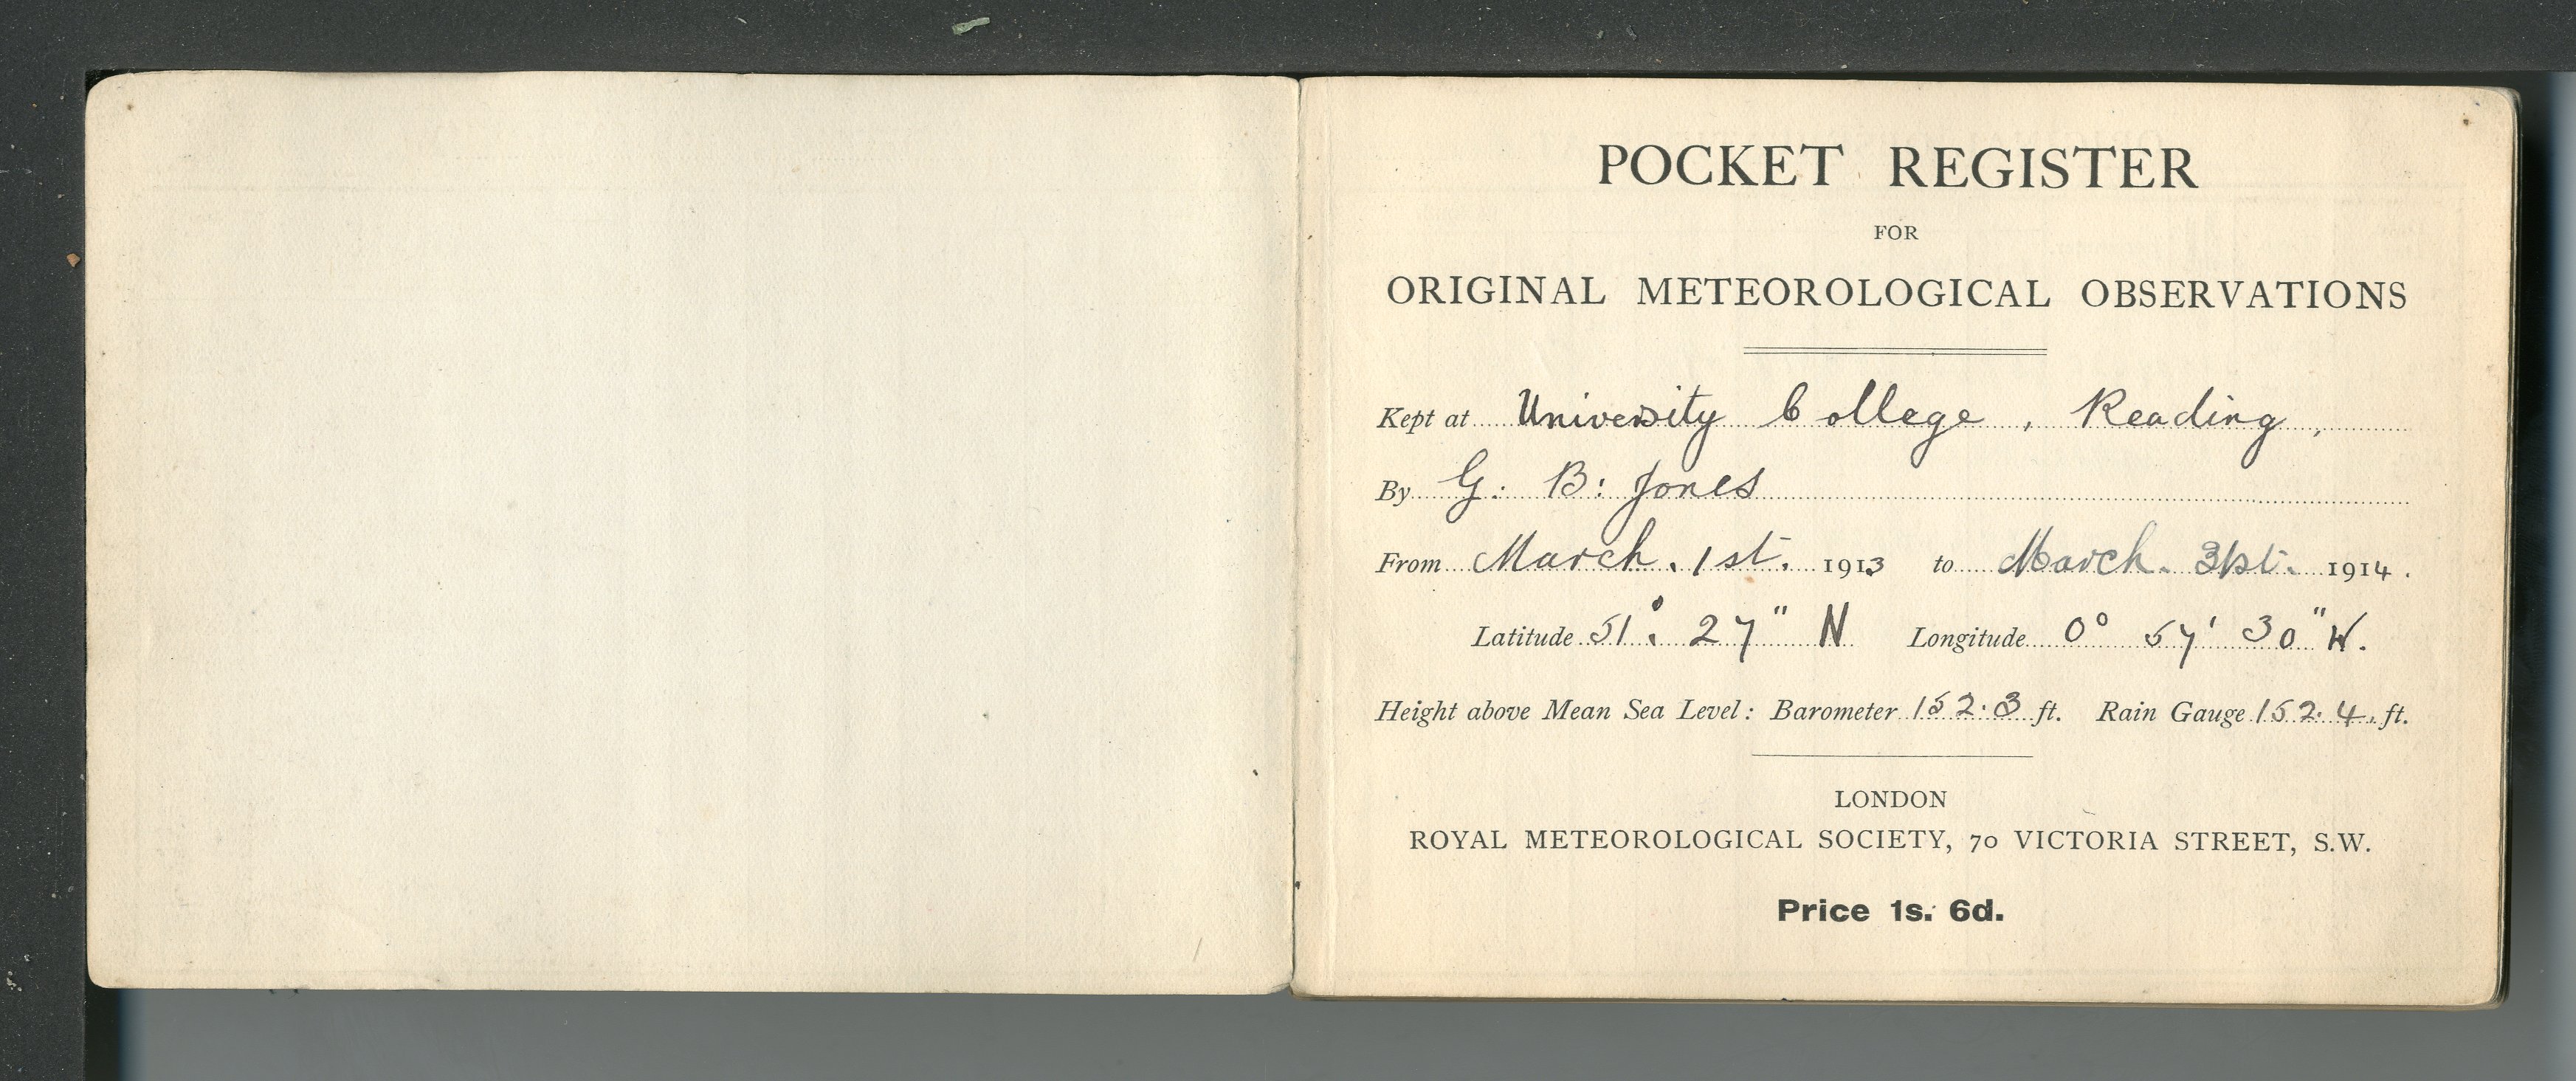 POCKET REGISTER
FOR
ORIGINAL METEOROLOGICAL OBSERVATIONS
Kept at University College, Reading,
By G. B. Jones
From March. 1st. 1913 to March. 31st. 1914.
Latitude 51°. 27" N Longitude 0° 57' 30" W.
Height above Mean Sea Level: Barometer 152.3 ft. Rain Gauge 152.4. ft.
LONDON
ROYAL METEOROLOGICAL SOCIETY, 70 VICTORIA STREET, S.W.
Price 1s. 6d.